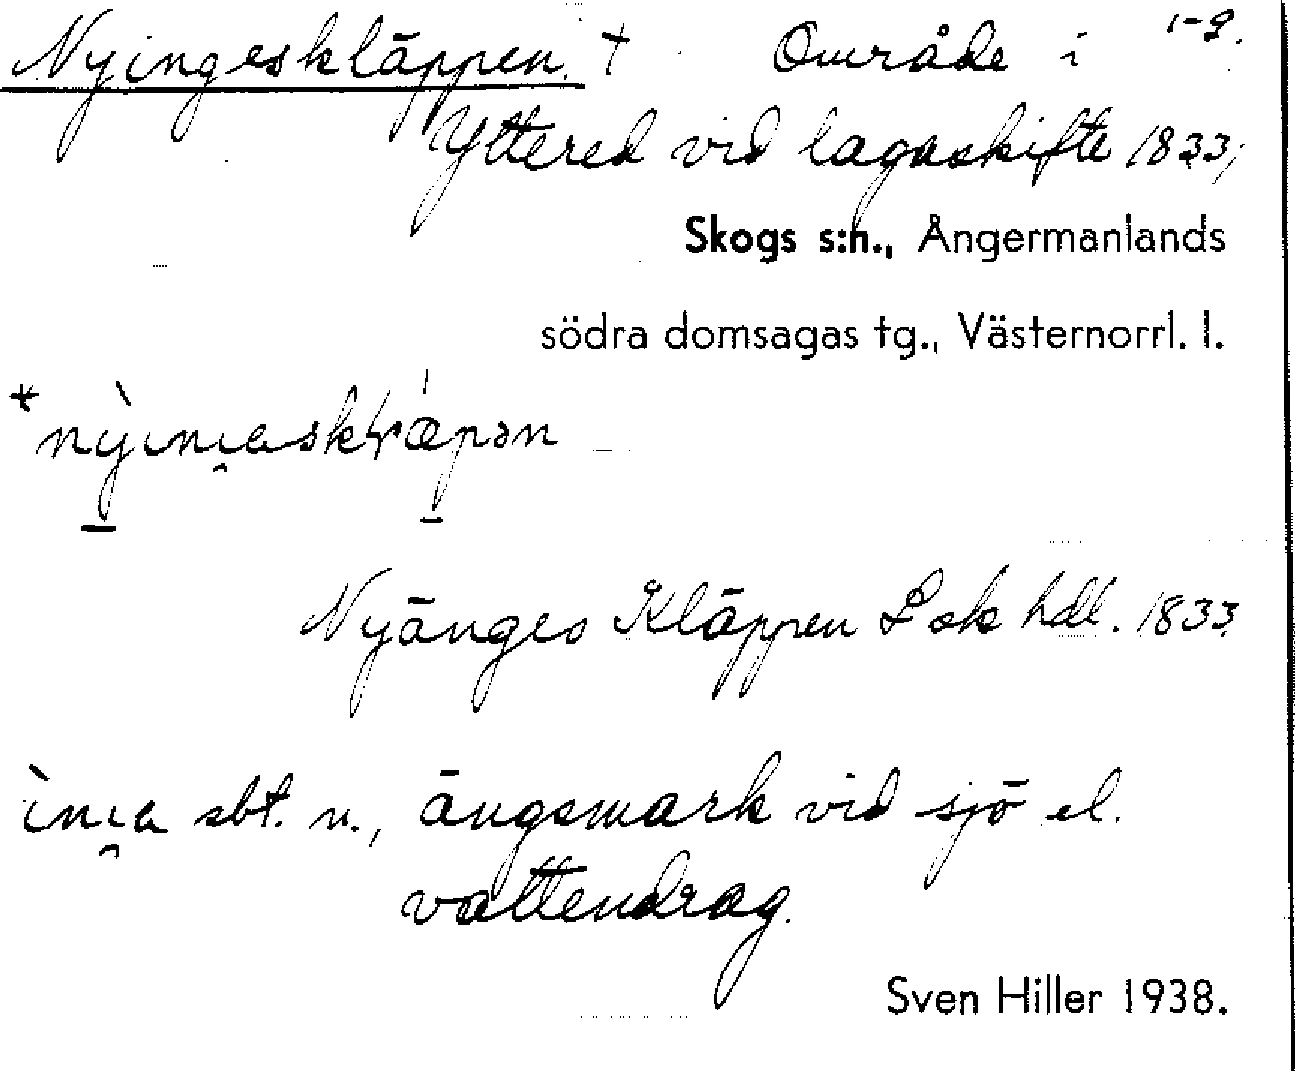 Nyingeskläppen. † Område i 1-9.
Yttered vid lagaskifte 1833;
Skogs s:n., Ångermanlands
södra domsagas tg., Västernorrl. l.
Nyänges Kläppen Lsk hdl. 1833
sbt. n., ängsmark vid sjö el.
vattendrag.
Sven Hiller 1938.